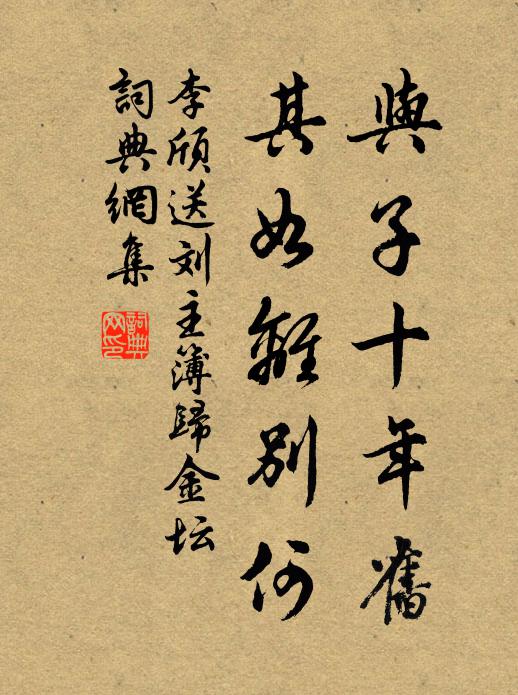 與子十年舊
其如離別何
李頎送刘主簿歸金坛
詞典網集
詞典
网印